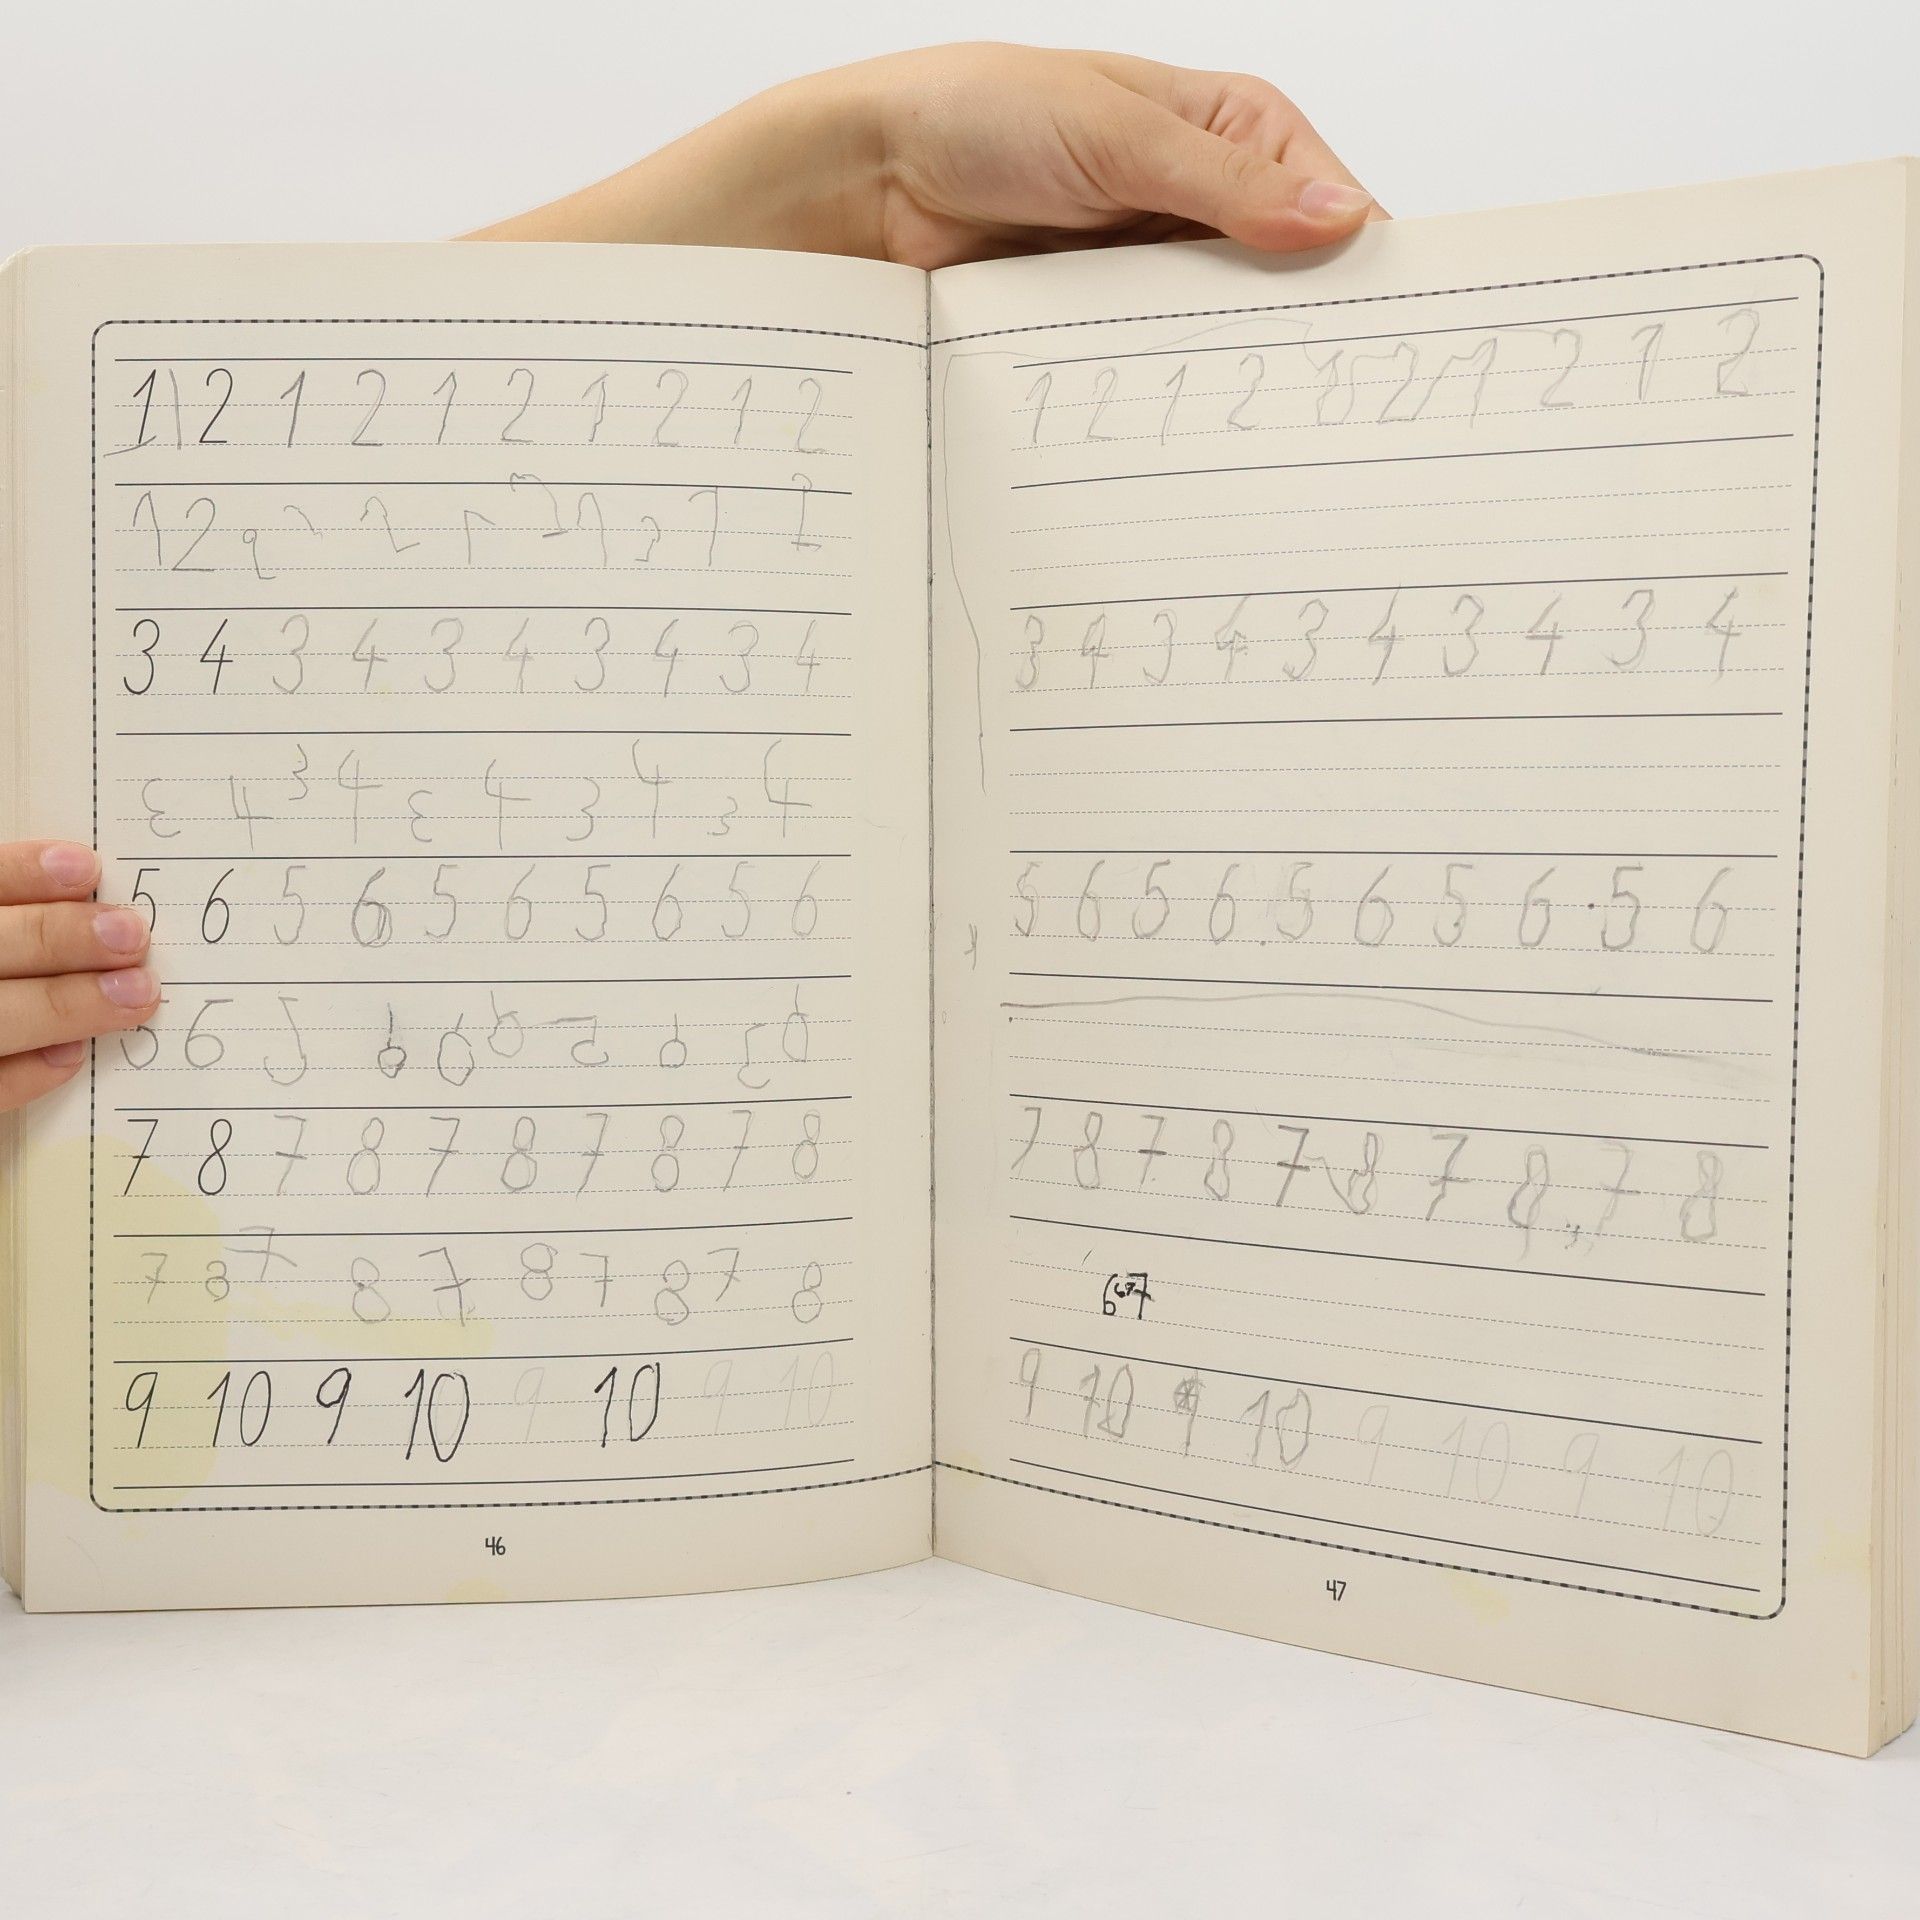 1 2 1 2 1 2 1 2 1 2
1 2
3 4 3 4 3 4 3 4 3 4
3 4 3 4 3 4 3 4 3 4
5 6 5 6 5 6 5 6 5 6
5 6 5
7 8 7 8 7 8 7 8 7 8
7 8 7 8 7 8 7 8 7 8
9 10 9 10 9 10 9 10
46
1 2 1 2 1 2 1 2 1 2
3 4 3 4 3 4 3 4 3 4
5 6 5 6 5 6 5 6 5 6
7 8 7 8 7 8 7 8 7 8
6 6 7 7
9 10 9 10 9 10 9 10
47